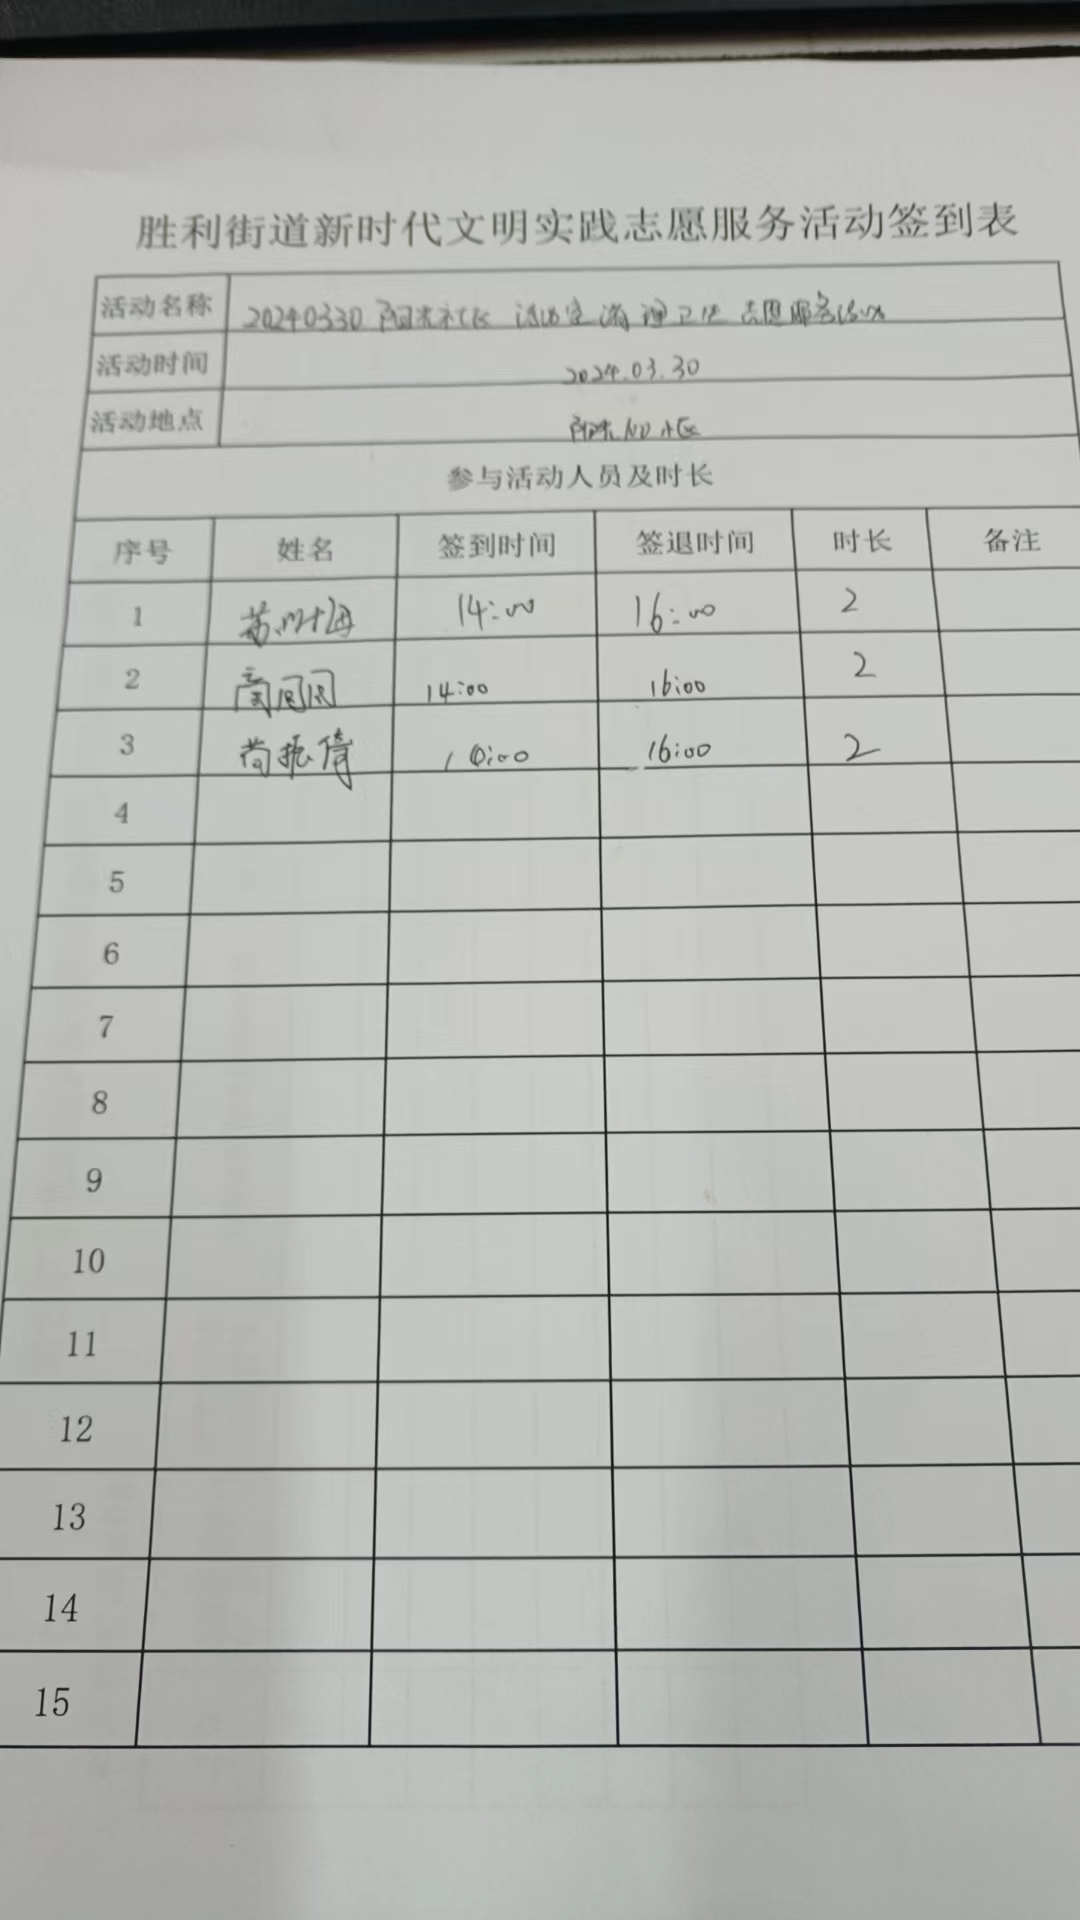 胜利街道新时代文明实践志愿服务活动签到表
活动名称 20240330 阳光社区 志愿服务活动
活动时间 2024.03.30
活动地点 阳光 小区
参与活动人员及时长
序号 姓名 签到时间 签退时间 时长 备注
1 14:00 16:00 2
2 14:00 16:00 2
3 荷振倩 14:00 16:00 2
4
5
6
7
8
9
10
11
12
13
14
15